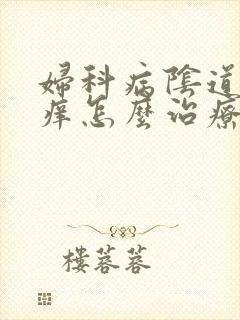 婦科病陰道
痒怎麼治療
樓蓉蓉